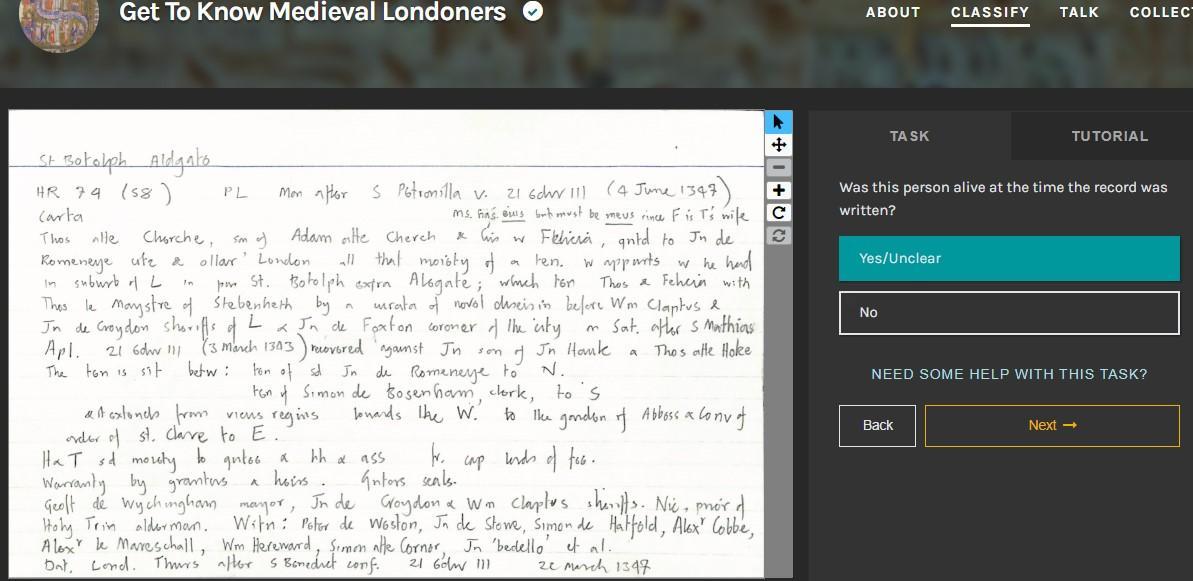 Get To Know Medieval Londoners
ABOUT CLASSIFY TALK COLLECT
St Botolph Aldgate
HR 74 (58) PL Mon after S Petronilla v. 21 Edw III (4 June 1347)
Carta ms. has eius but must be meus since F is T's wife
Thos atte Cherche, son of Adam atte Cherch & his w Felicia, grtd to Jn de
Romeneye cite & allar' London all that moiety of a ten. w appurts w he had
in suburb of L in par St. Botolph extra Alegate; which ten Thos & Felicia with
Thos le Maystre of Stebenheth by a novel disseisin before Wm Claptus &
Jn de Croydon sheriffs of L & Jn de Foxton coroner of the city on Sat. after S Mathias
Apl. 21 Edw III (3 March 1343) recovered against Jn son of Jn Hauk & Thos atte Hoke
The ten is sit betw: ten of sd Jn de Romeneye to N.
ten of Simon de Bosenham, clerk, to S
& it extends from vicus regius towards the W. to the garden of Abbess & Conv of
order of St. Clare to E.
H&T sd moiety to grtee & hh & ass fr. cap lords of fee.
Warranty by grantors & heirs. Grtors seals.
Geoff de Wychingham mayor, Jn de Croydon & Wm Claptus sheriffs. Nic, prior of
Holy Trin alderman. Witn: Peter de Weston, Jn de Stowe, Simon de Hatfeld, Alexr Cobbe,
Alexr le Mareschall, Wm Hereward, Simon atte Corner, Jn 'bedello' et al.
Dat. Lond. Thurs after S Benedict conf. 21 Edw III 22 March 1347
TASK TUTORIAL
Was this person alive at the time the record was
written?
Yes/Unclear
No
NEED SOME HELP WITH THIS TASK?
Back Next →